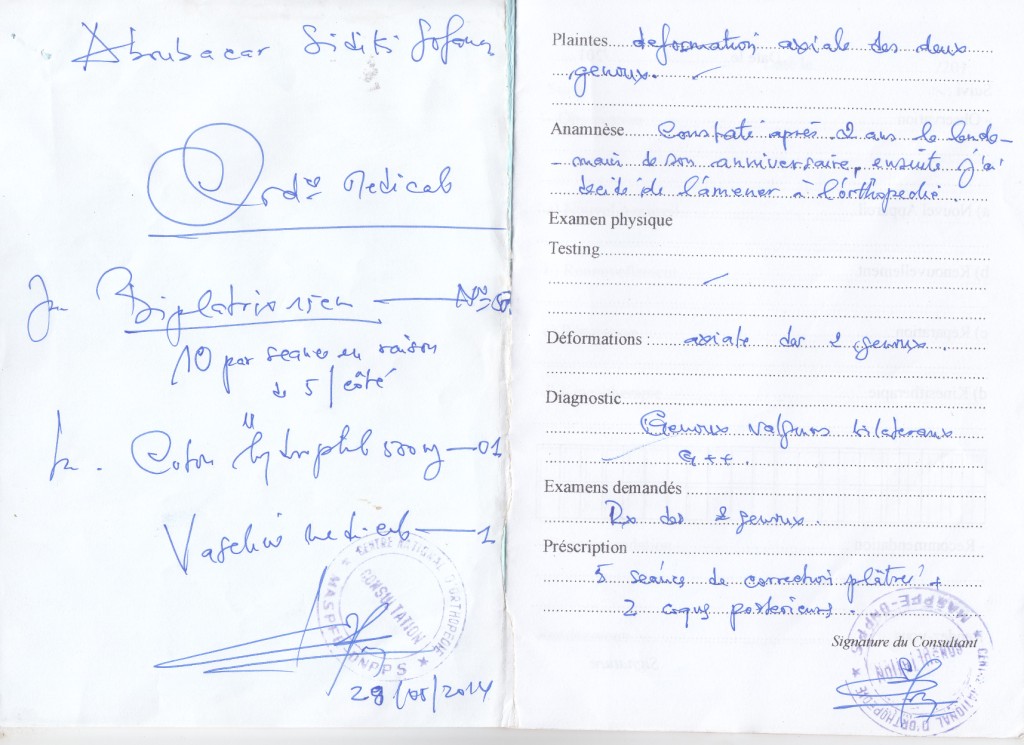 Aboubacar Sidiki Fofana
Ordce Medical
Biplatrix 15cm N=
10 par seance en raison
de 5/côté
Coton hydrophl 500mg 01
Vaseline medicale 1
CENTRE NATIONAL D'ORTHOPEDIE
CONSULTATION
28/05/2014
Plaintes deformation axiale des deux
genoux.
Anamnèse Constaté après 2 ans le lende-
-main de son anniversaire, ensuite j'ai
décidé de l'amener à l'orthopedie.
Examen physique
Testing
Déformations : axiale des 2 genoux.
Diagnostic
Genoux valgums bilateraux
G++.
Examens demandés
Rx des 2 genoux.
Préscription
5 seánces de correction plâtrée +
2 coques posterieurs.
Signature du Consultant
CENTRE NATIONAL D'ORTHOPEDIE
CONSULTATION